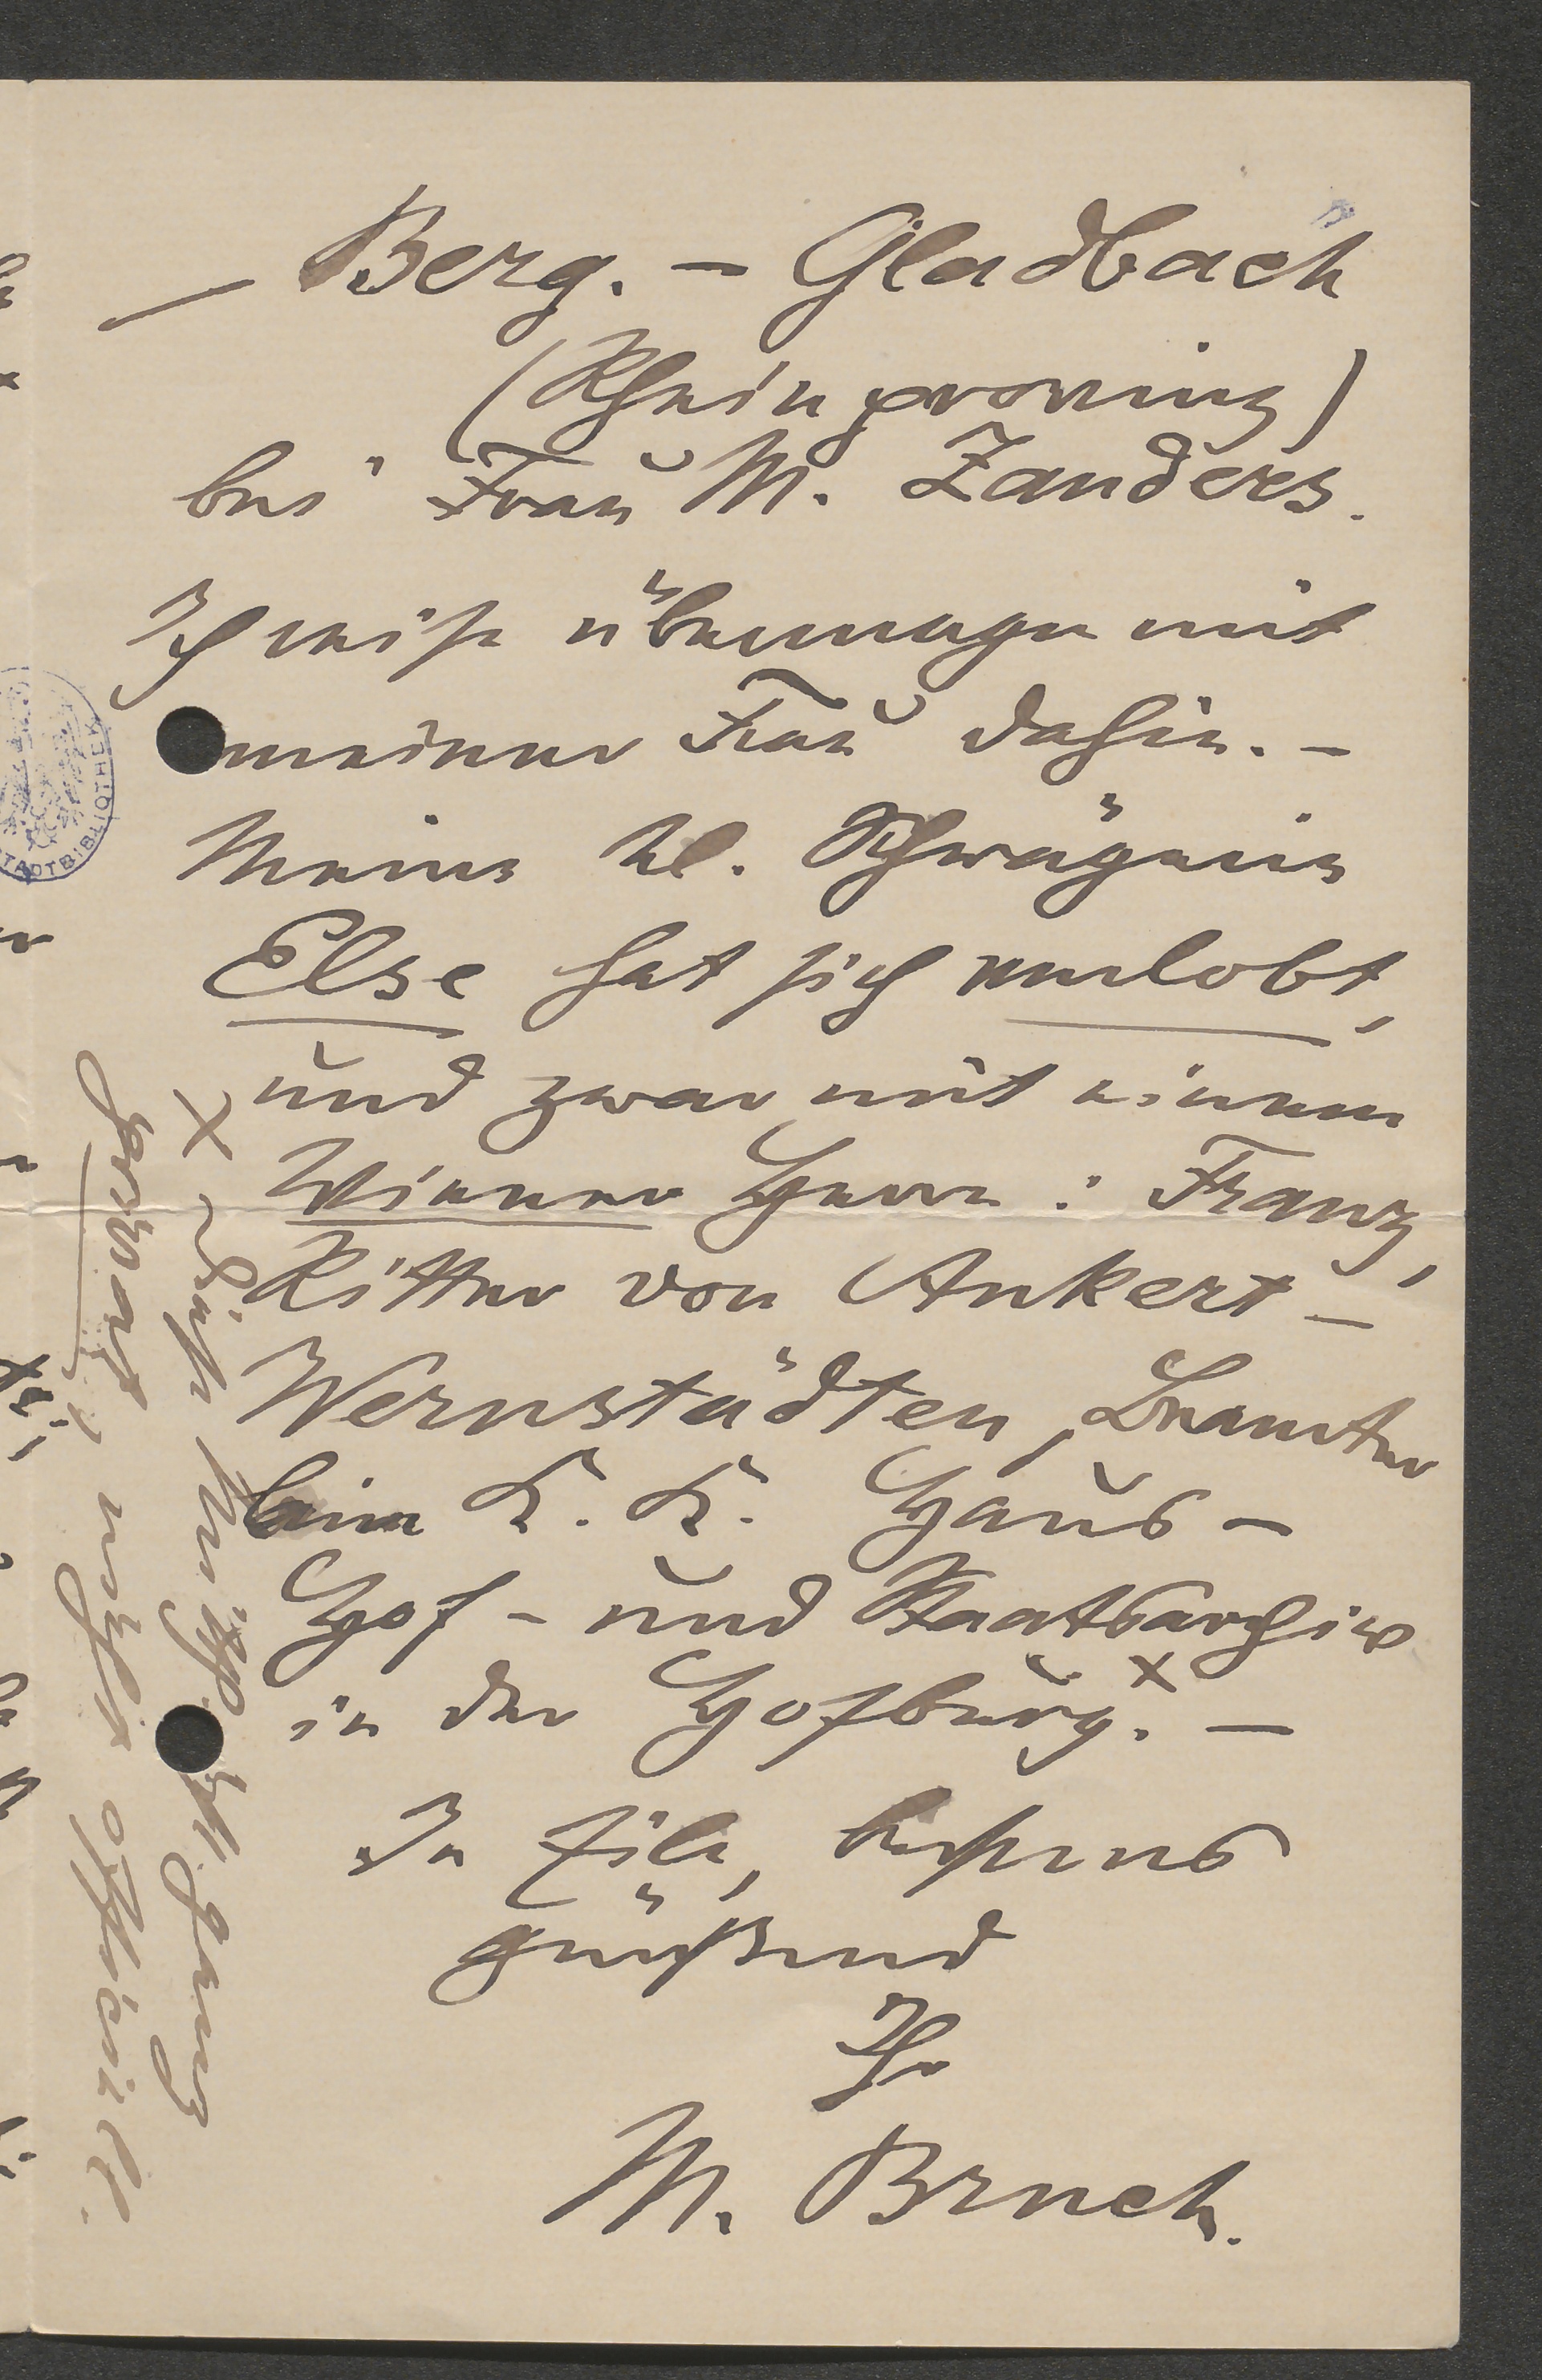 Berg.- Gladbach
(Rheinprovinz)
bei Frau M. Zanders.
Ich reise übermorgen mit
meiner Frau dahin. -
Meine kl. Schwägerin
Else hat sich verlobt,
und zwar mit einem
Wiener Herrn: Franz,
Ritter von Ankert-
Wernstädten, Beamter
beim K. K. Haus-
Hof- und Staatsarchiv
in der Hofburg.x -
In Eile, bestens
grüßend
Ihr
M. Bruch.
x Diese
privat; nicht officiell.
STADTBIBLIOTHEK